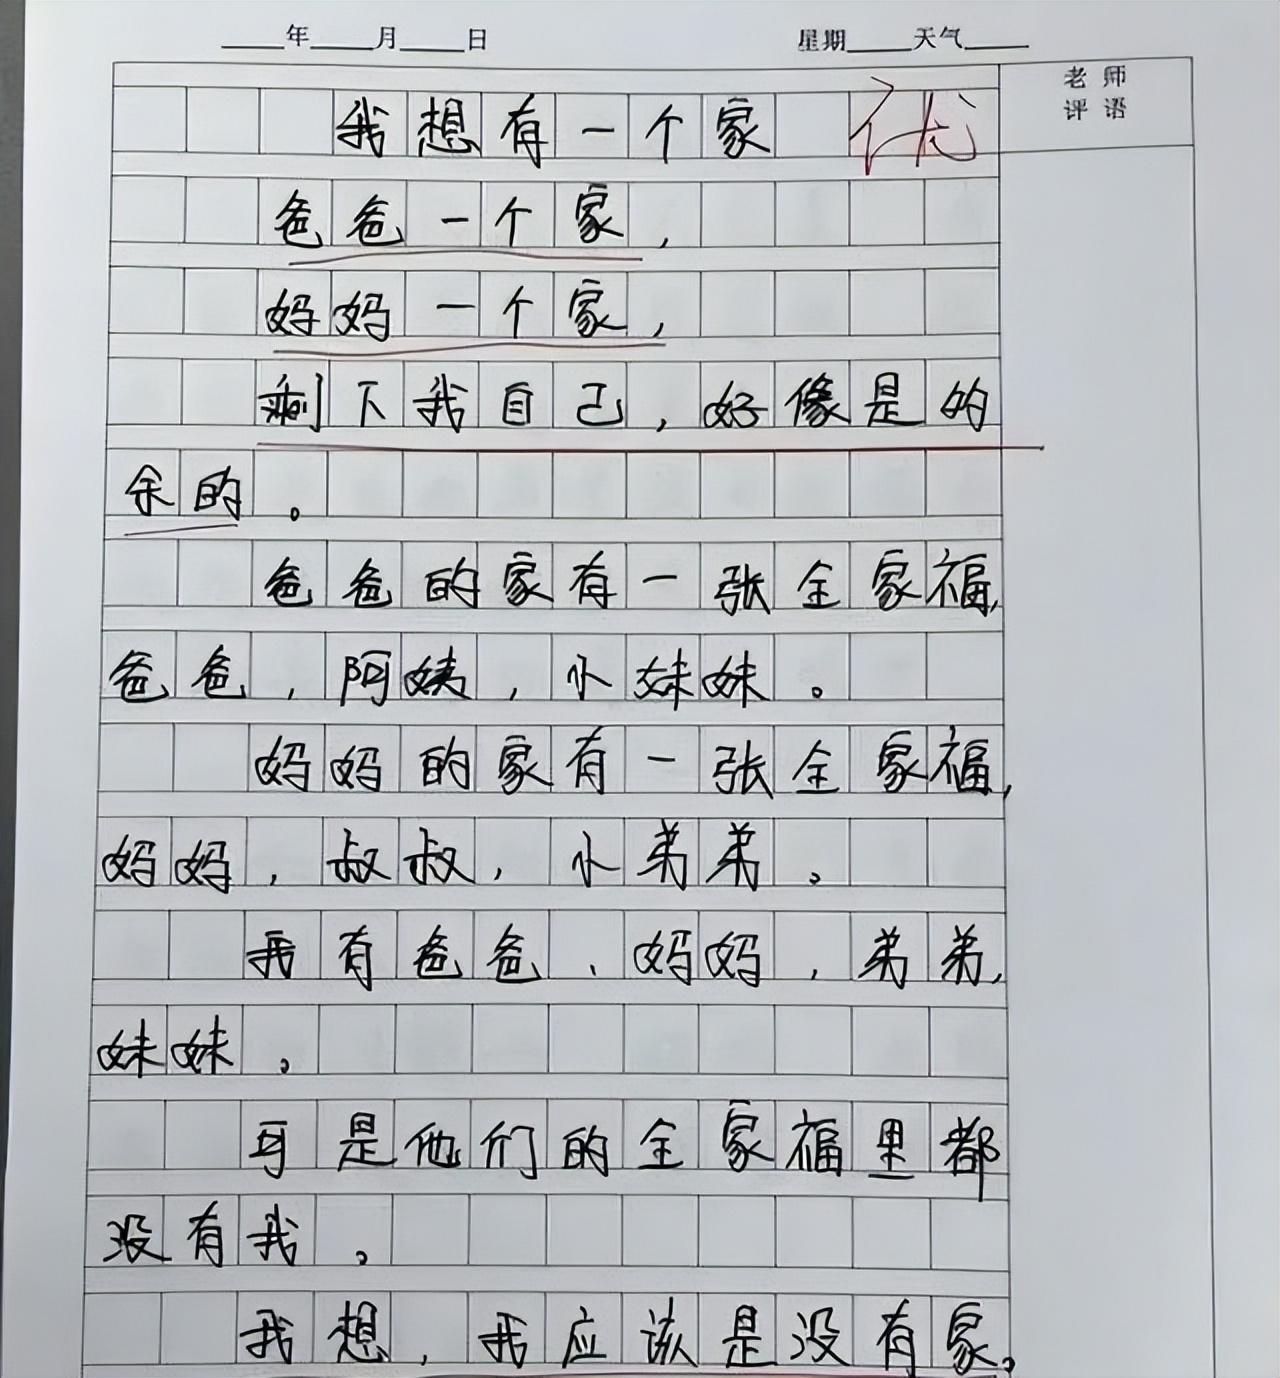 ____年____月____日 星期____天气____
老师
评语
我想有一个家 优
爸爸一个家，
妈妈一个家，
剩下我自己，好像是的
余的。
爸爸的家有一张全家福，
爸爸，阿姨，小妹妹。
妈妈的家有一张全家福，
妈妈，叔叔，小弟弟。
我有爸爸、妈妈，弟弟，
妹妹。
可是他们的全家福里都
没有我。
我想，我应该是没有家。